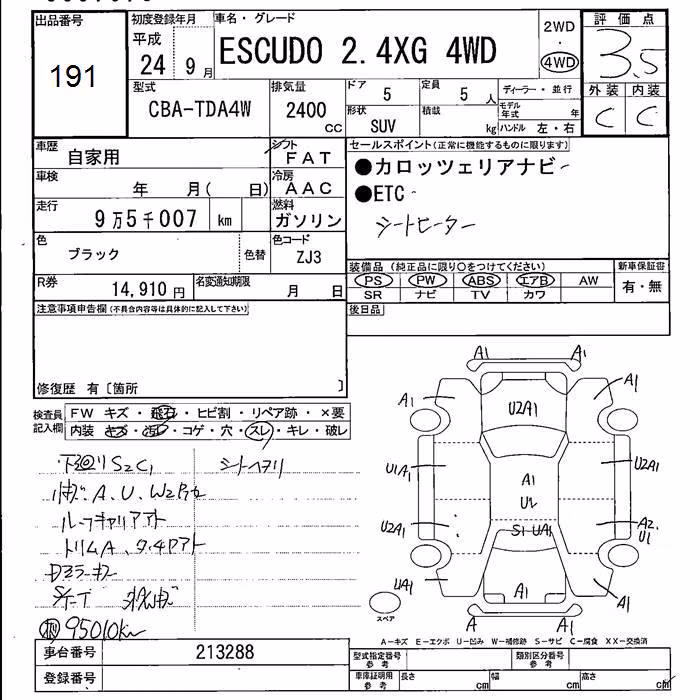 出品番号
191
初度登録年月
平成
24 9月
車名・グレード
ESCUDO 2.4XG 4WD
2WD
・
4WD
評価点
3.5
外装 内装
C C
型式
CBA-TDA4W
排気量
2400
cc
ドア
5
定員
5人
形状
SUV
積載
kg
ディーラー・並行
モデル年式 年
ハンドル 左・右
車歴
自家用
シフト
FAT
車検
年 月( 日)
冷房
AAC
走行
9万5千007 km
燃料
ガソリン
色
ブラック
色替
色コード
ZJ3
R券
14,910円
名変通知期限
月 日
セールスポイント(正常に機能するものに限ります)
●カロッツェリアナビ
●ETC
シートヒーター
装備品(純正品に限り○をつけてください)
PS PW ABS エアB AW
SR ナビ TV カワ
新車保証書
有・無
後日品
注意事項申告欄(不具合内容等は具体的に記入して下さい)
修復歴 有〔箇所 〕
検査員記入欄
FW キズ・飛石・ヒビ割・リペア跡・×要
内装 キズ・汚レ・コゲ・穴・スレ・キレ・破レ
下回りS2C1
シートヘタリ
A、U、W2
ルーフキャリアアト
トリムA、
95010km
A1 A1
A1 A1
U2A1
U1A1 U2A1
A1
U2
U2A1 A2
U1
S1 UA1
UA1 A1 A1
A A1
スペア
A-キズ E-エクボ U-凹み W-補修跡 S-サビ C-腐食 XX-交換済
車台番号 213288
登録番号
型式指定番号 参考
類別区分番号 参考
車庫証明用 参考
長さ cm 幅 cm 高さ cm